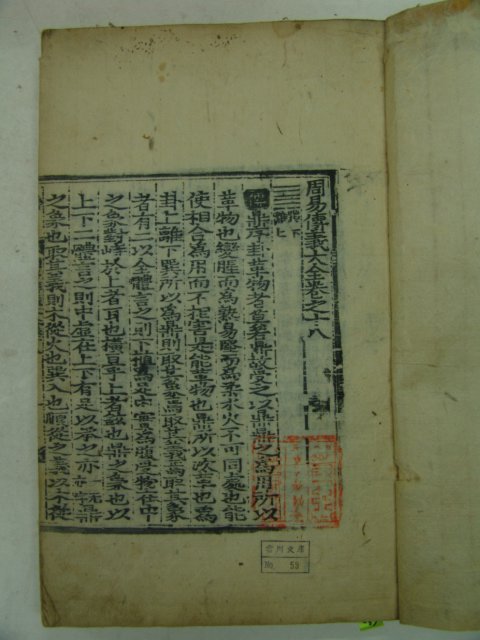 周易傳義大全卷之十八
巽下
離上
鼎序卦革物者莫若鼎故受之以鼎鼎之爲用所以
革物也變腥而爲熟易堅而爲柔水火不可同處也能
使相合爲用而不相害是能革物也鼎所以次革也爲
卦上離下巽所以爲鼎則取其象焉取其義焉取其象
者有二以全體言之則下植爲足中實爲腹受物在中
之象對峙於上者耳也橫亘乎上者鉉也鼎之象也以
上下二體言之則中虛在上下有足以承之亦鼎
之象也取其義則木從火也巽入也順從之義以木從
雲川文庫
No. 53